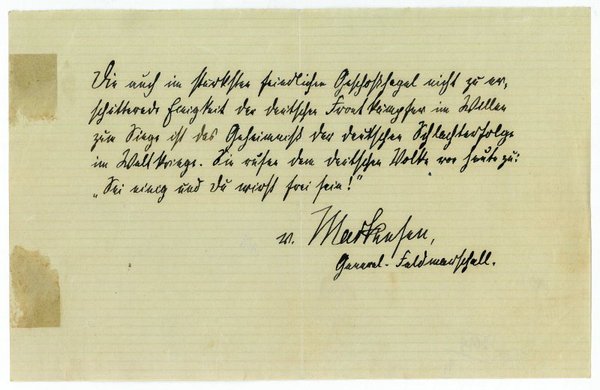 Die auch im stärksten feindlichen Geschoßhagel nicht zu er-
schütternde Einigkeit der deutschen Frontkämpfer im Willen
zum Siege ist das Geheimniß der deutschen Schlachterfolge
im Weltkriege. Sie rufen dem deutschen Volke von heute zu:
„Sei einig und Du wirst frei sein!"
v. Mackensen,
General-Feldmarschall.